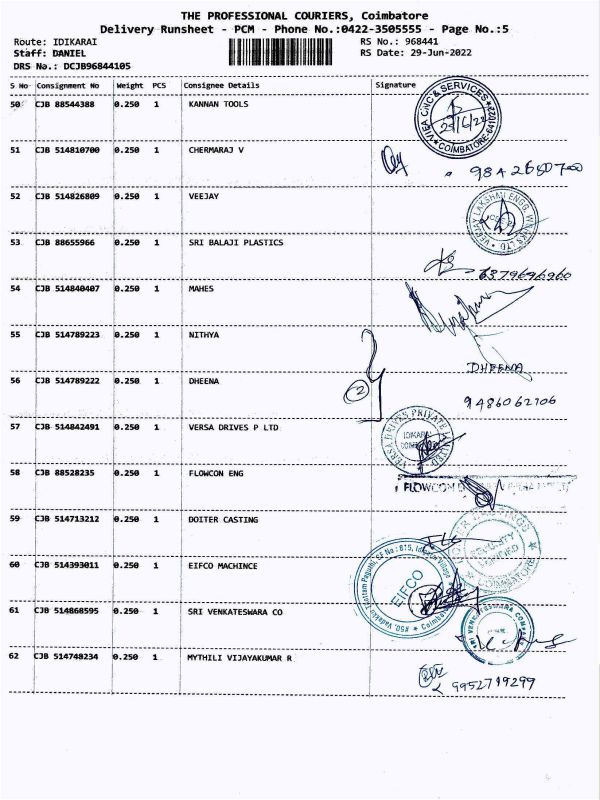 THE PROFESSIONAL COURIERS, Coimbatore
Delivery Runsheet - PCM - Phone No.:0422-3505555 - Page No.:5
Route: IDIKARAI RS No.: 968441
Staff: DANIEL RS Date: 29-Jun-2022
DRS No.: DCJB96844105
S No Consignment No Weight PCS Consignee Details Signature
50 CJB 88544388 0.250 1 KANNAN TOOLS
CNC & SERVICES
29/6/22
COIMBATORE
51 CJB 514810700 0.250 1 CHERMARAJ V
52 CJB 514826809 0.250 1 VEEJAY
53 CJB 88655966 0.250 1 SRI BALAJI PLASTICS
6379696960
54 CJB 514840407 0.250 1 MAHES
55 CJB 514789223 0.250 1 NITHYA
DHEENA
56 CJB 514789222 0.250 1 DHEENA
2
9486062706
57 CJB 514842491 0.250 1 VERSA DRIVES P LTD
VERSA DRIVES PRIVATE LIMITED
IDIKARAI
58 CJB 88528235 0.250 1 FLOWCON ENG
FLOWCON
59 CJB 514713212 0.250 1 DOITER CASTING
SECURITY
COIMBATORE
60 CJB 514393011 0.250 1 EIFCO MACHINCE
EIFCO
61 CJB 514868595 0.250 1 SRI VENKATESWARA CO
62 CJB 514748234 0.250 1 MYTHILI VIJAYAKUMAR R
9952719299